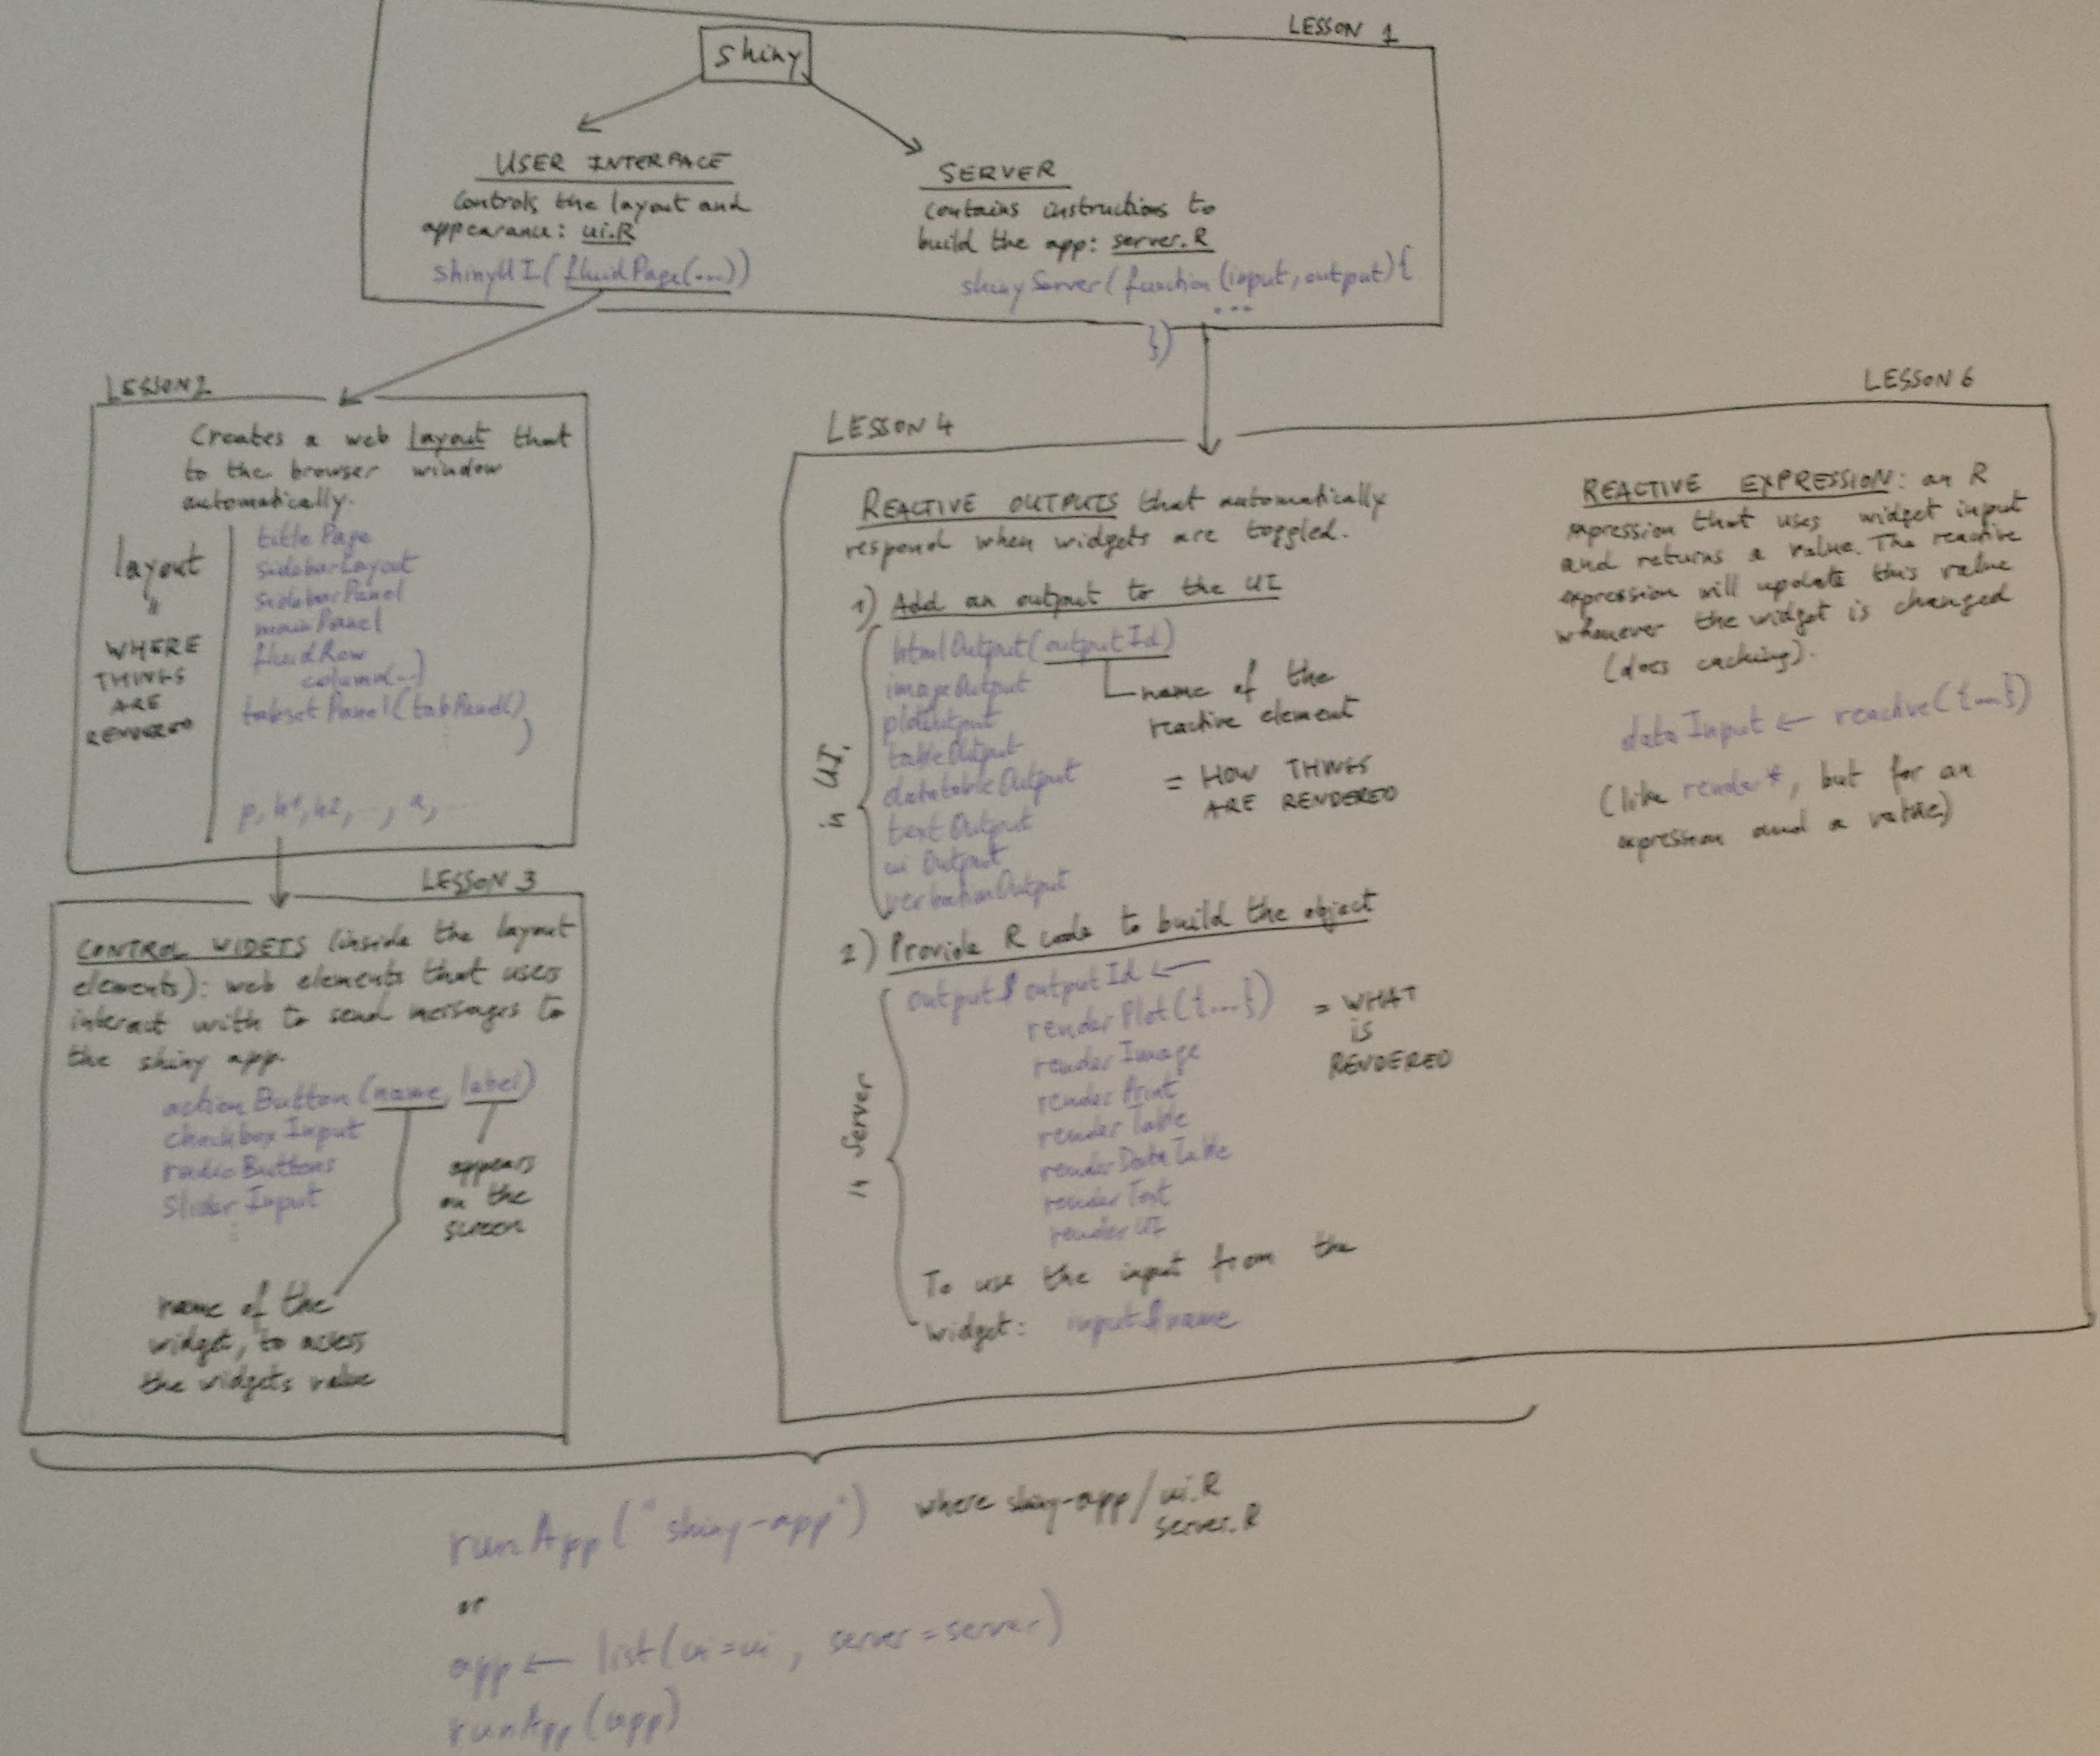 LESSON 1
shiny
USER INTERFACE
Controls the layout and
appearance: ui.R
shinyUI(fluidPage(...))
SERVER
contains instructions to
build the app: server.R
shinyServer(function(input, output){
...
})
LESSON 2
Creates a web layout that
to the browser window
automatically.
layout
"
WHERE
THINGS
ARE
RENDERED
titlePage
sidebarLayout
sidebarPanel
mainPanel
fluidRow
column(...)
tabsetPanel(tabPanel(),
)
p, h1, h2, ..., a, ...
LESSON 3
CONTROL WIDETS (inside the layout
elements): web elements that users
interact with to send messages to
the shiny app.
actionButton(name, label)
checkboxInput
radioButtons
SliderInput
appears
on the
screen
name of the
widget, to acess
the widgets value
LESSON 4
REACTIVE OUTPUTS that automatically
respond when widgets are toggled.
1) Add an output to the UI
in UI,
htmlOutput(outputId)
imageOutput
plotOutput
tableOutput
datatableOutput
textOutput
uiOutput
verbatimOutput
name of the
reactive element
= HOW THINGS
ARE RENDERED
2) Provide R code to build the object
in Server
output$outputId ←
renderPlot({...})
renderImage
renderPrint
renderTable
renderDataTable
renderText
renderUI
= WHAT
is
RENDERED
To use the input from the
widget: input$name
LESSON 6
REACTIVE EXPRESSION: an R
expression that uses widget input
and returns a value. The reactive
expression will update this value
whenever the widget is changed
(does caching).
dataInput ← reactive({...})
(like render*, but for an
expression and a value)
runApp("shiny-app") where shiny-app/ui.R
server.R
or
app ← list(ui=ui, server=server)
runApp(app)